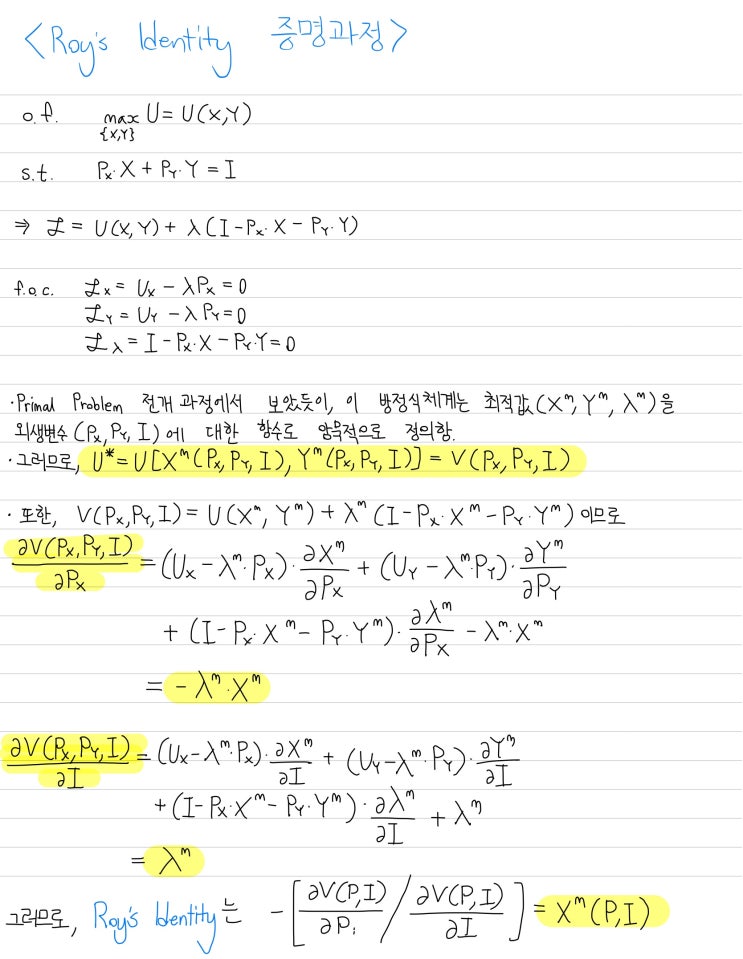 <Roy's Identity 증명과정>
o.f. max{X,Y} U = U(X,Y)
s.t. Px·X + PY·Y = I
⇒ ℒ = U(X,Y) + λ(I - Px·X - PY·Y)
f.o.c. ℒx = Ux - λPx = 0
ℒY = UY - λPY = 0
ℒλ = I - Px·X - PY·Y = 0
·Primal Problem 전개 과정에서 보았듯이, 이 방정식체계는 최적값(Xᵐ, Yᵐ, λᵐ)을
외생변수 (Px, PY, I)에 대한 함수로 암묵적으로 정의함.
·그러므로, U* = U[Xᵐ(Px,PY,I), Yᵐ(Px,PY,I)] = V(Px,PY,I)
·또한, V(Px,PY,I) = U(Xᵐ, Yᵐ) + λᵐ(I - Px·Xᵐ - PY·Yᵐ)이므로
∂V(Px,PY,I)/∂Px = (Ux - λᵐ·Px)·∂Xᵐ/∂Px + (UY - λᵐ·PY)·∂Yᵐ/∂PY
+ (I - Px·Xᵐ - PY·Yᵐ)·∂λᵐ/∂Px - λᵐ·Xᵐ
= -λᵐ·Xᵐ
∂V(Px,PY,I)/∂I = (Ux - λᵐ·Px)·∂Xᵐ/∂I + (UY - λᵐ·PY)·∂Yᵐ/∂I
+ (I - Px·Xᵐ - PY·Yᵐ)·∂λᵐ/∂I + λᵐ
= λᵐ
그러므로, Roy's Identity는 -[∂V(P,I)/∂Pi / ∂V(P,I)/∂I] = Xᵐ(P,I)